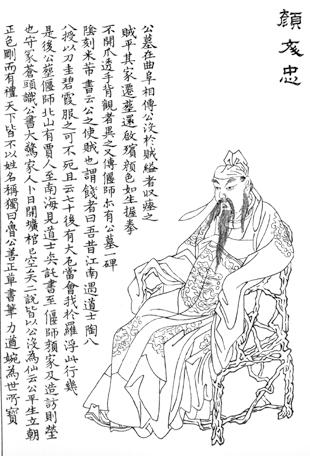 顏文忠
公墓在曲阜相傳公沒於賊縊者收瘞之
賊平其家遷墓還啟殯顏色如生握拳
不開爪透手背觀者異之又傳偃師亦有公墓一碑
陰刻米芾書云公之使賊也謂餞者曰吾昔江南遇道士陶八
八授以刀圭碧霞服之可不死且云七十後有大厄當會我於羅浮此行幾
是後公塟偃師北山有賈人至南海見道士奕託書至偃師顏家及造訪則塋
也守冢蒼頭識公書大驚家人卜日開壙棺已空矣二說皆以公沒為仙云公平生立朝
正色剛而有禮天下皆不以姓名稱獨曰魯公善正草書筆力遒婉為世所寶